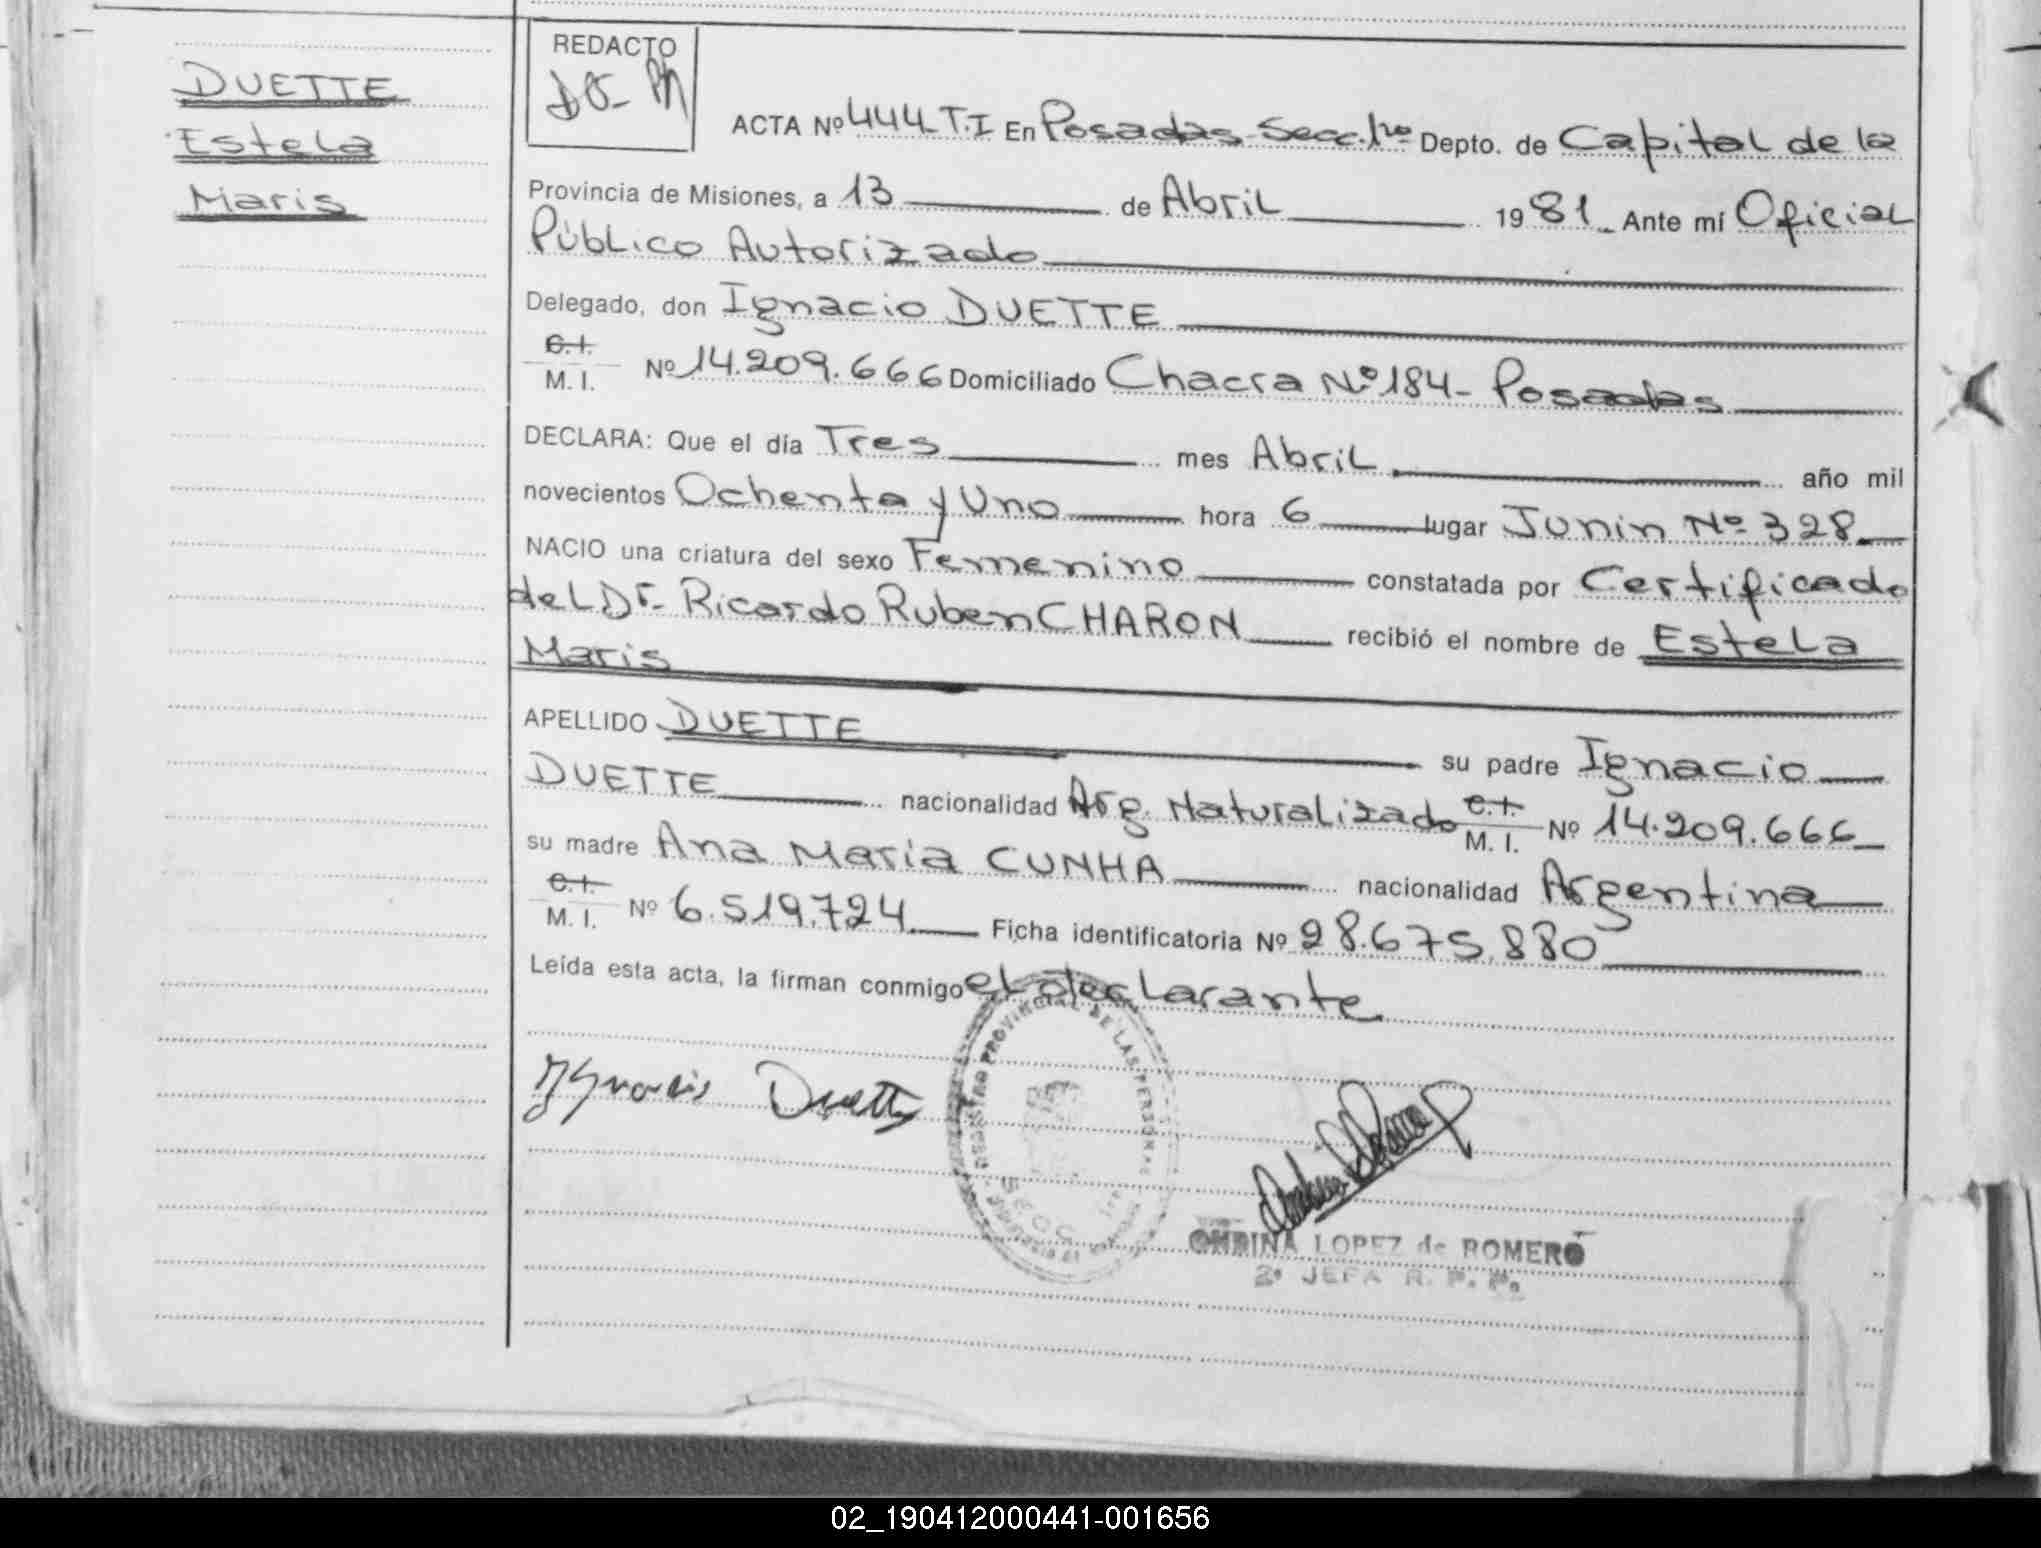 DUETTE
Estela
Maris
REDACTO
ACTA Nº 444 T.I En Posadas-Secc.1ra Depto. de Capital de la
Provincia de Misiones, a 13 de Abril 1981 Ante mí Oficial
Público Autorizado
Delegado, don Ignacio DUETTE
C.I.
M. I. Nº 14.209.666 Domiciliado Chacra Nº 184- Posadas
DECLARA: Que el día Tres mes Abril año mil
novecientos Ochenta y Uno hora 6 lugar Junin Nº 328
NACIO una criatura del sexo Femenino constatada por Certificado
del Dr. Ricardo Ruben CHARON recibió el nombre de Estela
Maris
APELLIDO DUETTE su padre Ignacio
DUETTE nacionalidad Arg. Naturalizado C.I. M. I. Nº 14.209.666
su madre Ana Maria CUNHA nacionalidad Argentina
C.I.
M. I. Nº 6.519.724 Ficha identificatoria Nº 28.675.880
Leída esta acta, la firman conmigo el declarante
Ygnacio Duette
REGISTRO PROVINCIAL DE LAS PERSONAS
SECC. 1ra
LOPEZ de ROMERO
2º JEFA R. P. P.
02_190412000441-001656